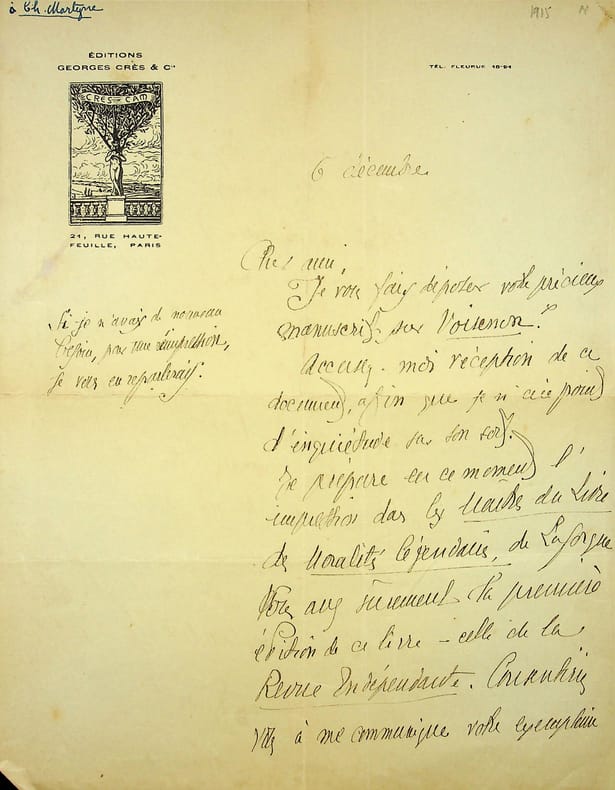 à Ch. Martyne
1915
N
ÉDITIONS
GEORGES CRÈS & Cie
CRES-CAM
21, RUE HAUTE-
FEUILLE, PARIS
TÉL. FLEURUS 16-91
6 décembre
Cher ami,
Je vous fais déposer votre précieux
manuscrit sur Voisenon.
Accusez-moi réception de ce
document, afin que je n'aie point
d'inquiétude sur son sort.
Je prépare en ce moment l'
impression dans les Maîtres du Livre
des Moralités Légendaires, de Laforgue
Vous avez sûrement la première
édition de ce livre – celle de la
Revue Indépendante. Consentiriez
vous à me communiquer votre exemplaire
Si je n'avais de nouveau
besoin, pour une réimpression,
je vous en reparlerais.